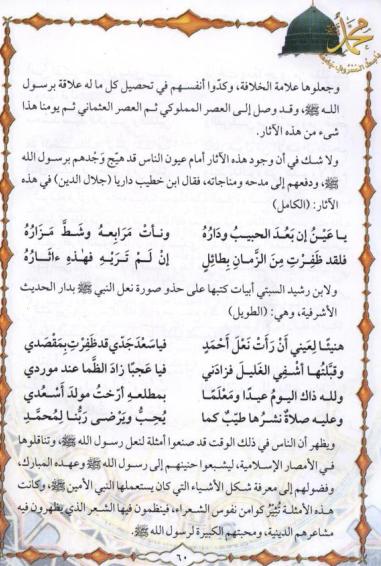 محمد ﷺ
وجعلوها علامة الخلافة، وكدّوا أنفسهم في تحصيل كل ما له علاقة برسول
الله ﷺ، وقد وصل إلى العصر المملوكي ثم العصر العثماني ثم يومنا هذا
شىء من هذه الآثار.
ولا شك في أن وجود هذه الآثار أمام عيون الناس قد هيّج وَجْدهم برسول الله
ﷺ، ودفعهم إلى مدحه ومناجاته، فقال ابن خطيب داريا (جلال الدين) في هذه
الآثار: (الكامل)
يا عَيْنُ إن بَعُدَ الحبيبُ ودَارُهُ ونـأتْ مَرَابِعـهُ وشَطَّ مَزَارُهُ
فلقد ظَفِرْتِ مِنَ الزَّمانِ بِطائلٍ إنْ لَـمْ تَرَيْهِ فهٰذِهِ ءاثَـارُهُ
ولابن رشيد السبتي أبيات كتبها على حذو صورة نعل النبي ﷺ بدار الحديث
الأشرفية، وهي: (الطويل)
هنيئًا لعيني أنْ رَأتْ نَعْلَ أحْمَدٍ فيا سَعْدَ جَدّي قد ظَفِرْتُ بِمَقْصَدي
وقبَّلتُها أشْفِي الغَليلَ فزادَني فيا عَجَبًا زادَ الظَّما عندَ موردي
ولله ذاك اليومُ عيدًا ومَعْلَمًا بمطلعِهِ أرّختُ مولدَ أسْعُدي
وعليه صلاةٌ نشرُها طيّبٌ كما يُحِبُّ ويَرْضى رَبُّنا لِمُحمَّدِ
ويظهر أن الناس في ذلك الوقت قد صنعوا أمثلة لنعل رسول الله ﷺ، وتناقلوها
في الأمصار الإسلامية، ليشبعوا حنينهم إلى رسول الله ﷺ وعهده المبارك،
وفضولهم إلى معرفة شكل الأشياء التي كان يستعملها النبي الأمين ﷺ، وكانت
هذه الأمثلة تُثِيْرُ كوامن نفوس الشعراء، فينظمون فيها الشعر الذي يظهرون فيه
مشاعرهم الدينية، ومحبتهم الكبيرة لرسول الله ﷺ.
٦٠